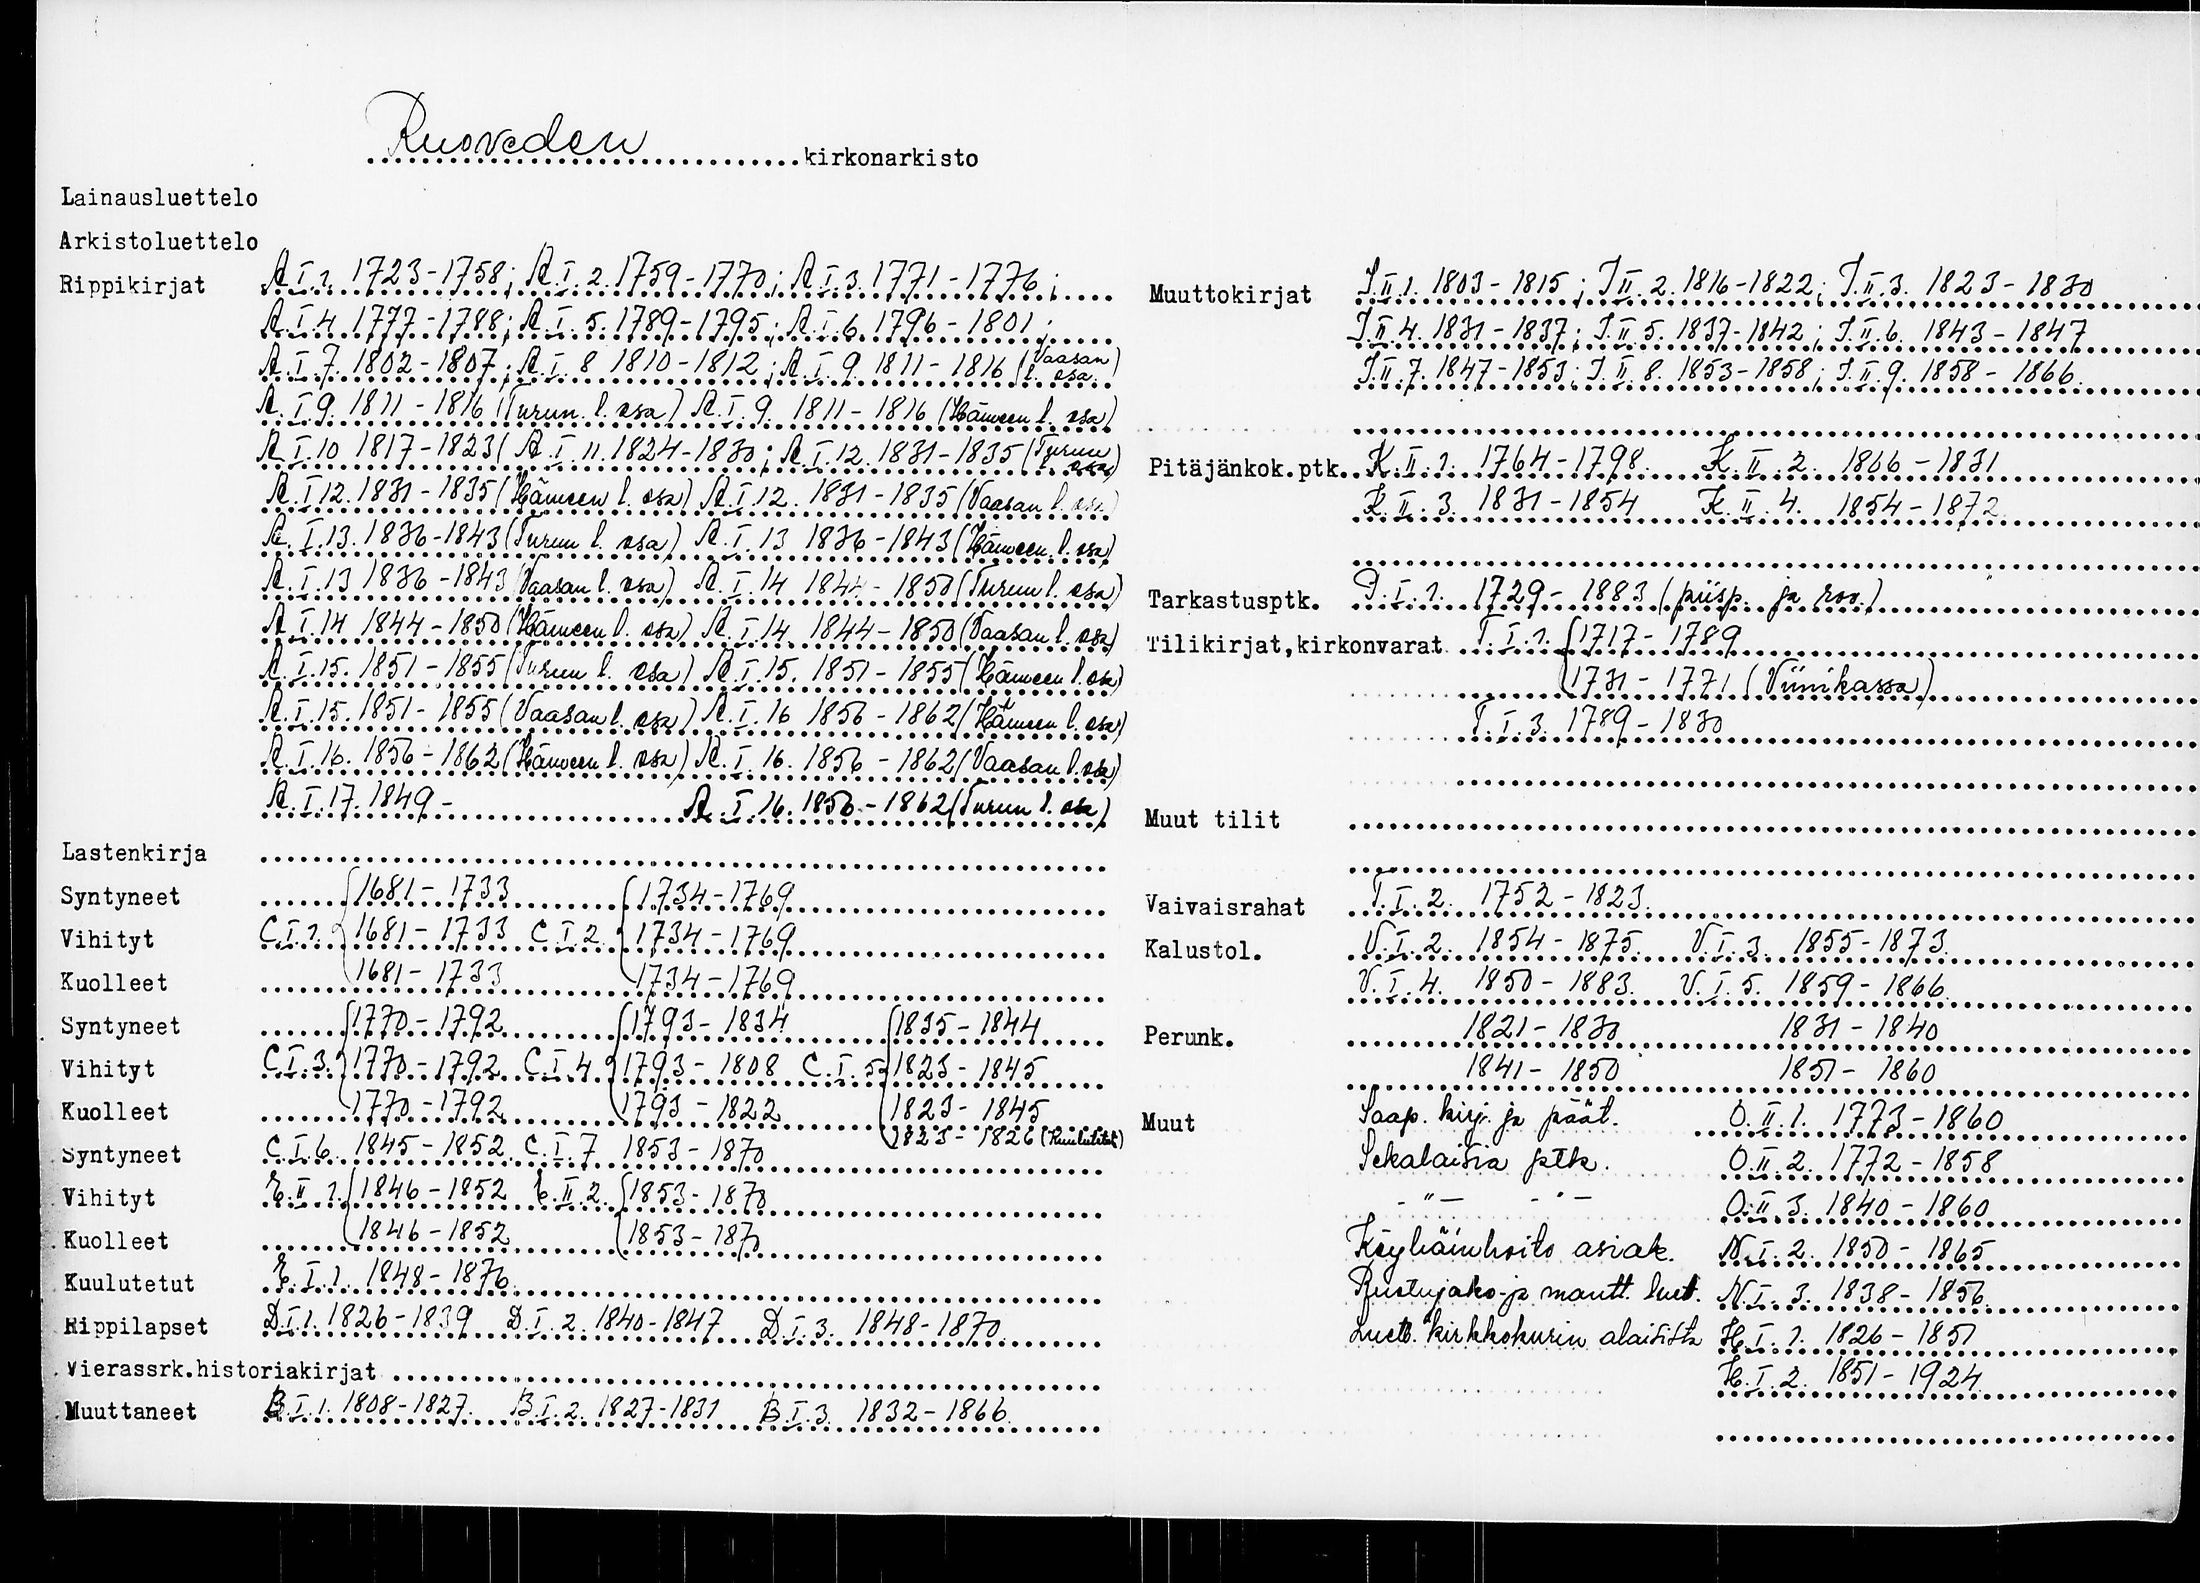 Ruoveden kirkonarkisto
Lainausluettelo
Arkistoluettelo
Rippikirjat A.I.1. 1723-1758; A.I.2. 1759-1770; A.I.3. 1771-1776;
A.I.4 1777-1788; A.I.5. 1789-1795; A.I.6. 1796-1801;
A.I.7. 1802-1807; A.I.8 1810-1812; A.I.9. 1811-1816 (Vaasan l. osa)
A.I.9. 1811-1816 (Turun l. osa) A.I.9. 1811-1816 (Hämeen l. osa)
A.I.10 1817-1823( A.I.11. 1824-1830; A.I.12. 1831-1835 (Turun l. osa)
A.I.12. 1831-1835 (Hämeen l. osa) A.I.12. 1831-1835 (Vaasan l. osa)
A.I.13. 1836-1843 (Turun l. osa) A.I.13 1836-1843 (Hämeen l. osa)
A.I.13 1836-1843 (Vaasan l. osa) A.I.14 1844-1850 (Turun l. osa)
A.I.14 1844-1850 (Hämeen l. osa) A.I.14. 1844-1850 (Vaasan l. osa)
A.I.15. 1851-1855 (Turun l. osa) A.I.15. 1851-1855 (Hämeen l. osa)
A.I.15. 1851-1855 (Vaasan l. osa) A.I.16 1856-1862 (Hämeen l. osa)
A.I.16. 1856-1862 (Hämeen l. osa) A.I.16. 1856-1862 (Vaasan l. osa)
A.I.17. 1849- A.I.16. 1856-1862 (Turun l. osa)
Lastenkirja
Syntyneet 1681-1733 1734-1769
Vihityt C.I.1. 1681-1733 C.I.2. 1734-1769
Kuolleet 1681-1733 1734-1769
Syntyneet 1770-1792 1793-1834 1835-1844
Vihityt C.I.3. 1770-1792 C.I.4. 1793-1808 C.I.5. 1823-1845
Kuolleet 1770-1792 1793-1822 1823-1845
1823-1826 (Kuulutetut)
Syntyneet C.I.6. 1845-1852. C.I.7 1853-1870
Vihityt E.II.1. 1846-1852 E.II.2. 1853-1870
Kuolleet 1846-1852 1853-187
Kuulutetut E.I.1. 1848-1876.
Rippilapset D.I.1. 1826-1839 D.I.2. 1840-1847 D.I.3. 1848-1870.
Vierassrk.historiakirjat
Muuttaneet B.I.1. 1808-1827. B.I.2. 1827-1831 B.I.3 1832-1866.
Muuttokirjat J.II.1. 1803-1815; J.II.2. 1816-1822; J.II.3. 1823-1830
J.II.4. 1831-1837; J.II.5. 1837-1842; J.II.6. 1843-1847
J.II.7. 1847-1853; J.II.8. 1853-1858; J.II.9. 1858-1866.
Pitäjänkok.ptk. K.II.1. 1764-1798. K.II.2. 1806-1831
K.II.3. 1831-1854 K.II.4. 1854-1872.
Tarkastusptk. D.I.1. 1729-1883 (piisp. ja rov.)
Tilikirjat,kirkonvarat T.I.1. 1717-1789
1731-1771 (Viinikassa)
T.I.3. 1789-1830
Muut tilit
Vaivaisrahat T.I.2. 1752-1823.
Kalustol. V.I.2. 1854-1875. V.I.3. 1855-1873.
V.I.4. 1850-1883. V.I.5. 1859-1866.
Perunk. 1821-1830 1831-1840
1841-1850 1851-1860
Muut Saap. kirj. ja päät. O.II.1. 1773-1860
Sekalaisia ptk. O.II.2. 1772-1858
-"- -"- O.II.3. 1840-1860
Köyhäinhoito asiak. N.I.2. 1850-1865
Ruotujako-ja mantt. luet. N.I.3. 1838-1856.
Luett. kirkkokurin alaisista H.I.1. 1826-1851
H.I.2. 1851-1924.